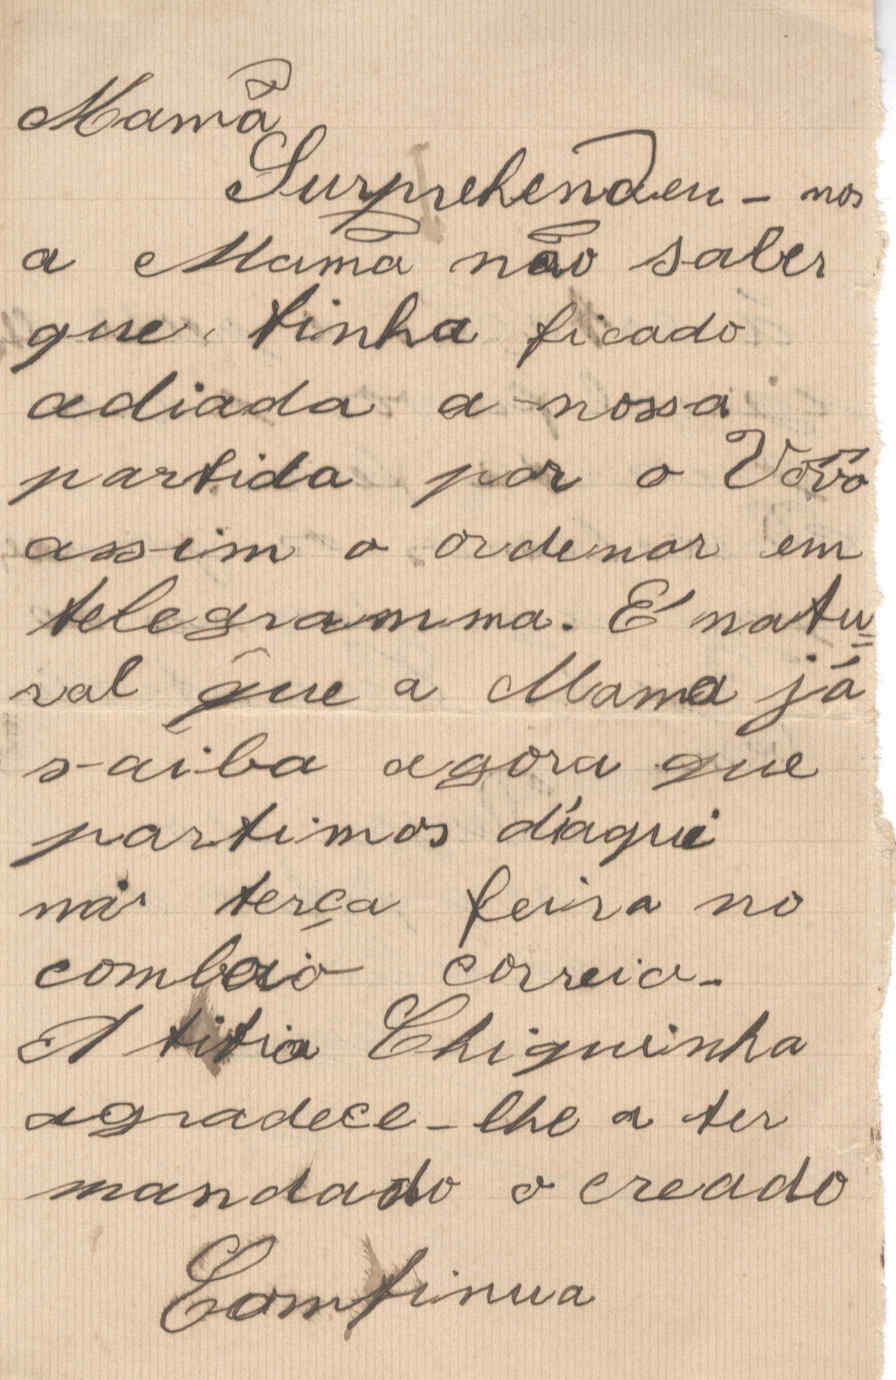 Mamã
Surprehendeu-nos
a Mamã não saber
que tinha ficado
adiada a nossa
partida por o Vôvô
assim o ordenar em
telegramma. É natu=
ral que a Mamã já
saiba agora que
partimos d'aqui
na terça feira no
comboio correio.
A titia Chiquinha
agradece-lhe a ter
mandado o creado
Comtinua